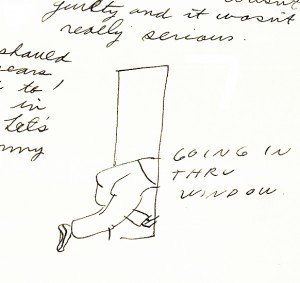 guilty and it wasn't
really serious.
shaved
ears
to!
in
Let's
GOING IN
THRU
WINDOW.